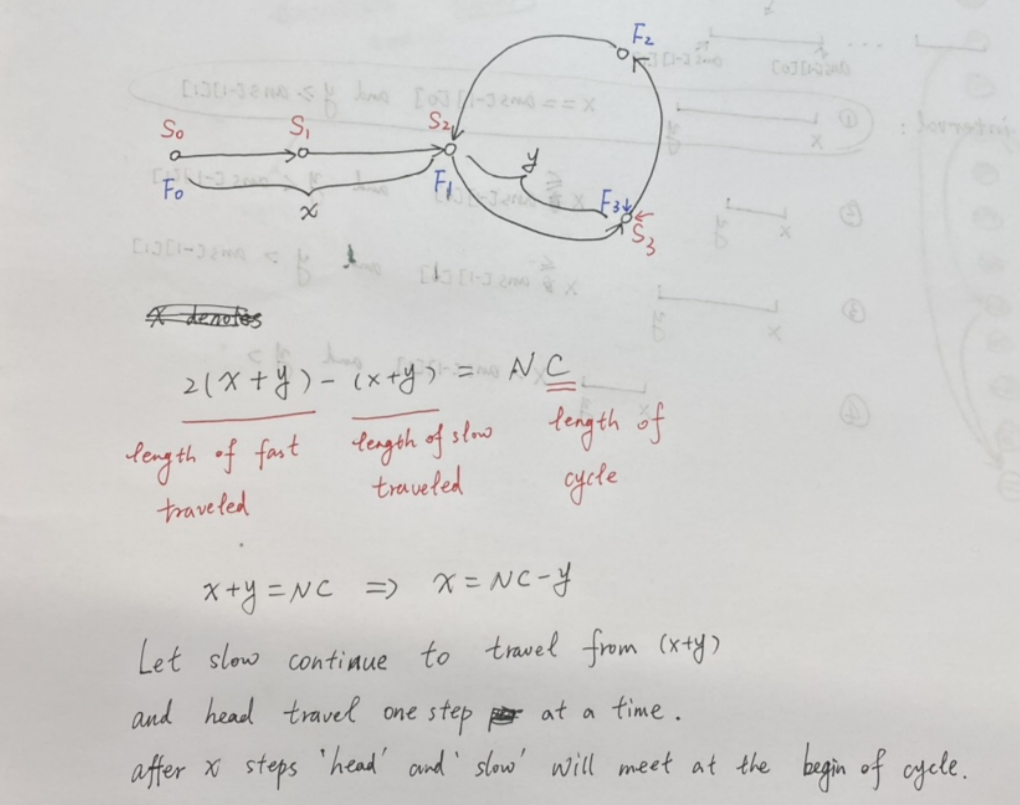 F₂
S₀ S₁ S₂
y
F₀ F₁ F₃ S₃
x
x denotes
2(x+y) - (x+y) = NC
length of fast traveled
length of slow traveled
length of cycle
x+y=NC => x=NC-y
Let slow continue to travel from (x+y)
and head travel one step at a time.
after x steps 'head' and 'slow' will meet at the begin of cycle.